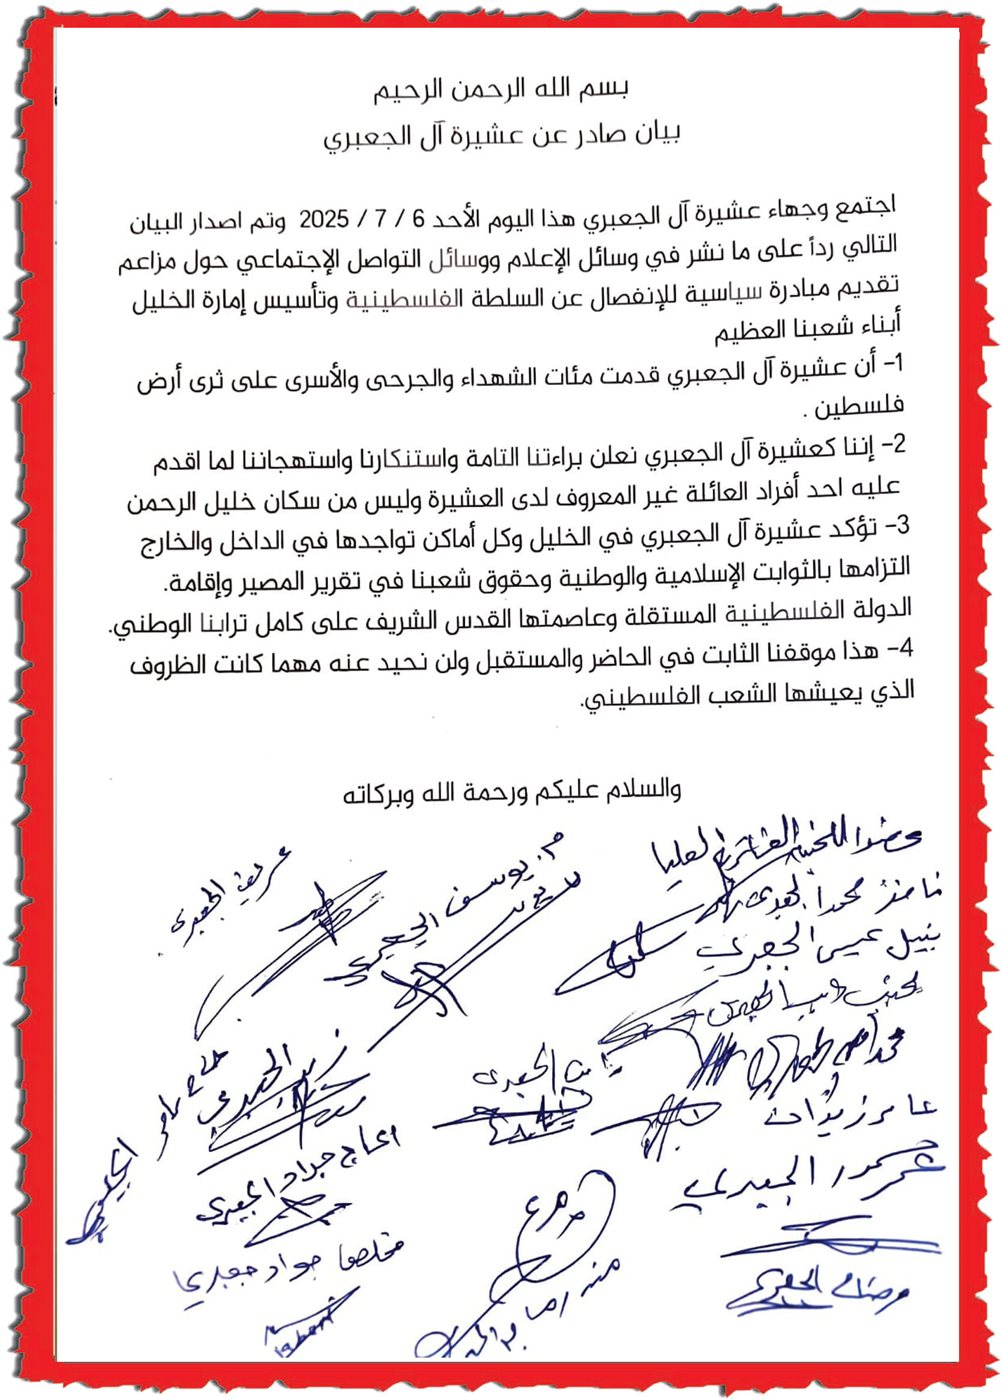 بسم الله الرحمن الرحيم
بيان صادر عن عشيرة آل الجعبري
اجتمع وجهاء عشيرة آل الجعبري هذا اليوم الأحد 6 / 7 / 2025 وتم اصدار البيان
التالي رداً على ما نشر في وسائل الإعلام ووسائل التواصل الإجتماعي حول مزاعم
تقديم مبادرة سياسية للإنفصال عن السلطة الفلسطينية وتأسيس إمارة الخليل
أبناء شعبنا العظيم
1- أن عشيرة آل الجعبري قدمت مئات الشهداء والجرحى والأسرى على ثرى أرض
فلسطين .
2- إننا كعشيرة آل الجعبري نعلن براءتنا التامة واستنكارنا واستهجاننا لما اقدم
عليه احد أفراد العائلة غير المعروف لدى العشيرة وليس من سكان خليل الرحمن
3- تؤكد عشيرة آل الجعبري في الخليل وكل أماكن تواجدها في الداخل والخارج
التزامها بالثوابت الإسلامية والوطنية وحقوق شعبنا في تقرير المصير وإقامة.
الدولة الفلسطينية المستقلة وعاصمتها القدس الشريف على كامل ترابنا الوطني.
4- هذا موقفنا الثابت في الحاضر والمستقبل ولن نحيد عنه مهما كانت الظروف
الذي يعيشها الشعب الفلسطيني.
والسلام عليكم ورحمة الله وبركاته
يوسف الجعبري
نبيل عيسى الجعبري
الجعبري
زيد الجعبري
عامر زيدان
الحاج جواد الجعبري
الجعبري
جواد جعبري
الجعبري